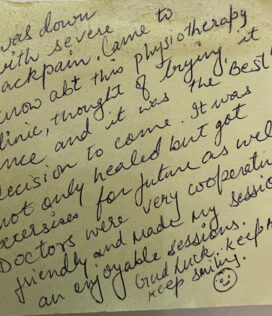 was down
with severe
ackpain. Came to
know abt this physiotherapy
linic, thought of trying it
nce and it was the Best
ecision to come. It was
not only healed but got
exercises for future as well
Doctors were very cooperativ
friendly and made my sessio
an enjoyable sessions.
Gud luck. keep
keep smiling.